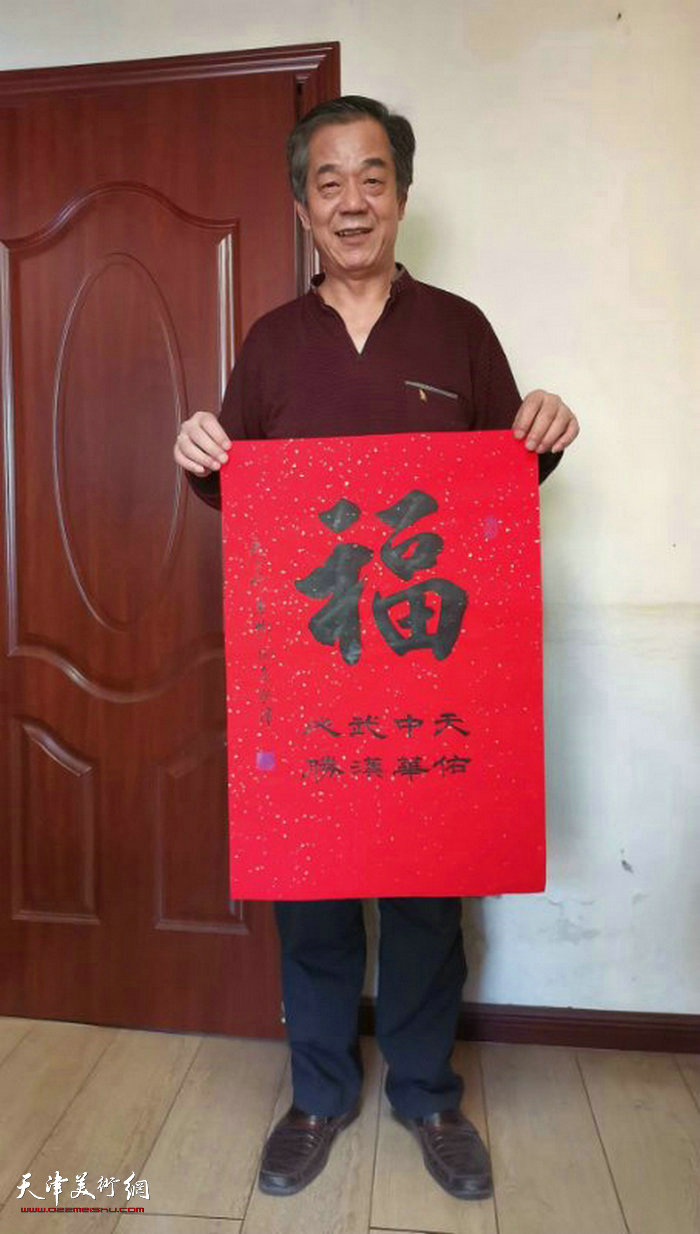 福
天佑
中華
武漢
必勝
天津美術網
www.022meishu.com